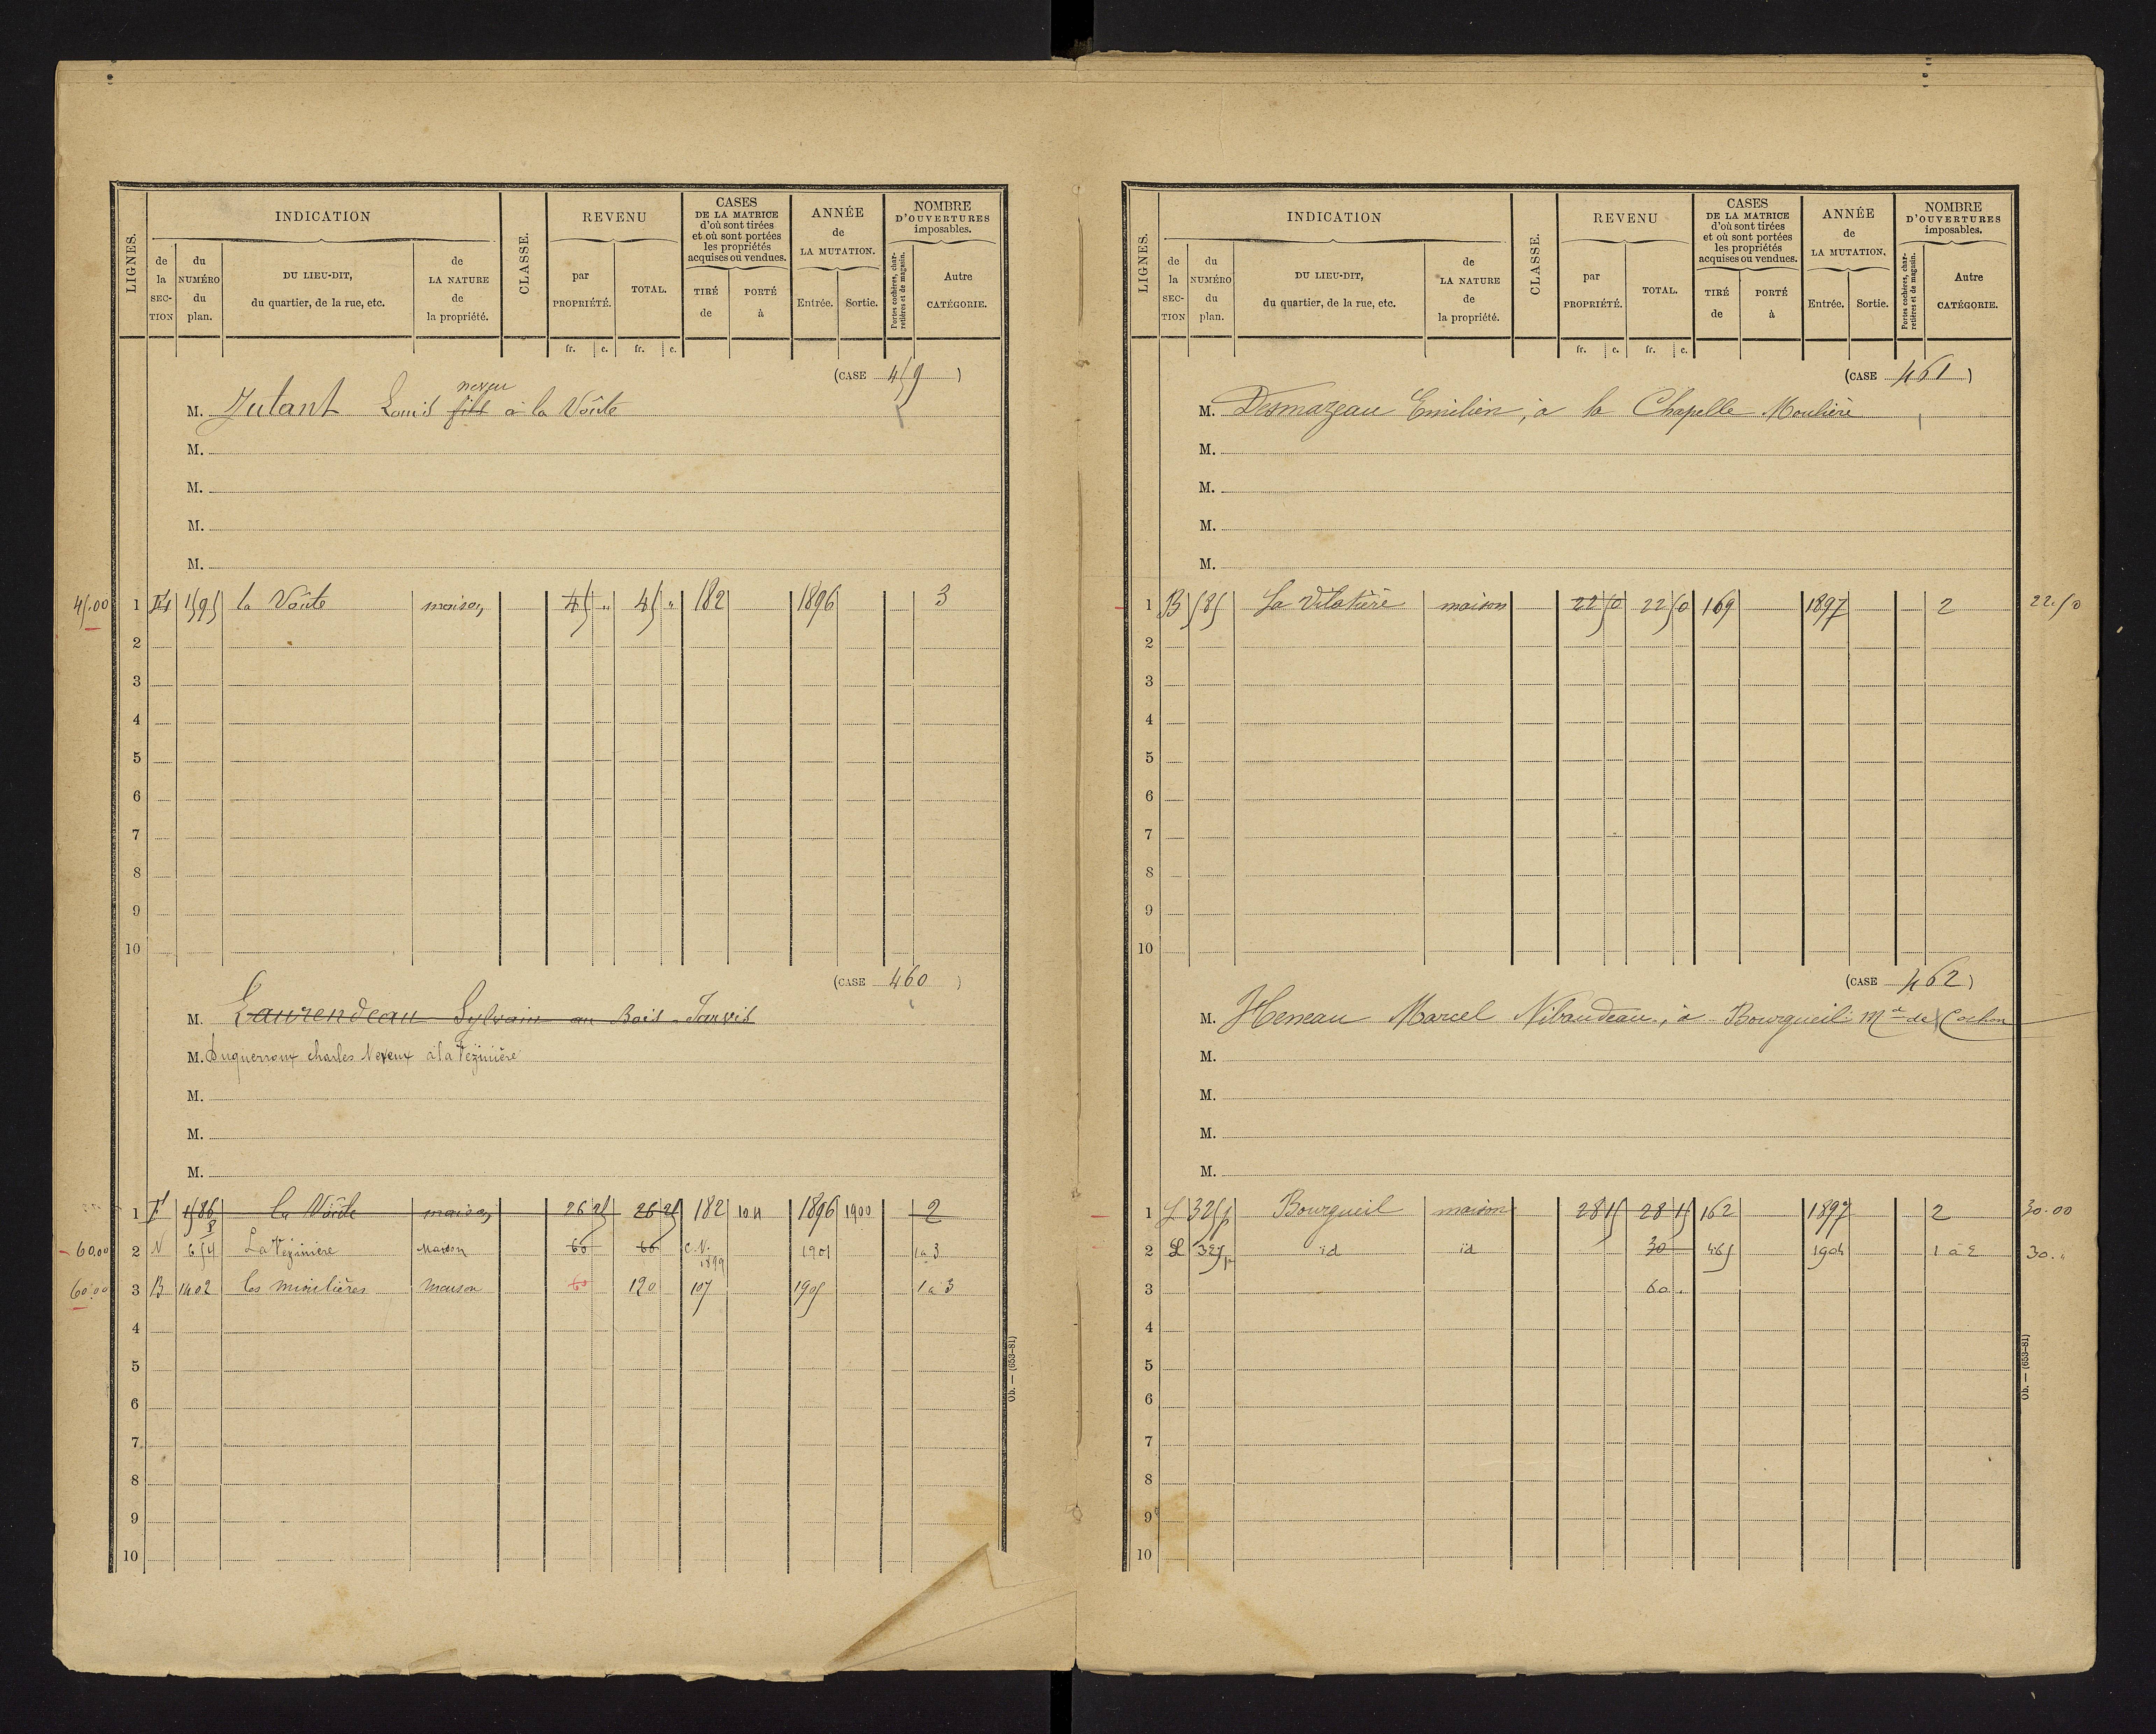 LIGNES. INDICATION CLASSE. REVENU CASES DE LA MATRICE d'où sont tirées et où sont portées les propriétés acquises ou vendues. ANNÉE de LA MUTATION. NOMBRE D'OUVERTURES imposables.
de la SECTION du NUMÉRO du plan. DU LIEU-DIT, du quartier, de la rue, etc. de LA NATURE de la propriété. par PROPRIÉTÉ. TOTAL. TIRÉ de PORTÉ à Entrée. Sortie. Portes cochères, charretières et de magasin. Autre CATÉGORIE.
fr. c. fr. c.
(CASE 459)
neveu
M. Jutant Louis fils à la Voûte
M.
M.
M.
M.
45.00 1 1595 la Voûte maison 45 " 45 " 182 1896 3
2
3
4
5
6
7
8
9
10
(CASE 460)
M. Laurendeau Sylvain au Bois-Jarvis
M. Duguerroux charles Neveux à la Vezinière
M.
M.
M.
1 1586 la Voûte maison 26 25 26 25 182 104 1896 1900 2
60.00 2 N 654 La Vezinière Maison 60 60 C.N. 1899 1901 1 a 3
60.00 3 B 1402 les mioulières maison 60 120 107 1905 1 a 3
4
5
6
7
8
9
10
Ob. — (653-81)
LIGNES. INDICATION CLASSE. REVENU CASES DE LA MATRICE d'où sont tirées et où sont portées les propriétés acquises ou vendues. ANNÉE de LA MUTATION. NOMBRE D'OUVERTURES imposables.
de la SECTION du NUMÉRO du plan. DU LIEU-DIT, du quartier, de la rue, etc. de LA NATURE de la propriété. par PROPRIÉTÉ. TOTAL. TIRÉ de PORTÉ à Entrée. Sortie. Portes cochères, charretières et de magasin. Autre CATÉGORIE.
fr. c. fr. c.
(CASE 461)
M. Desmazeau Emilien, à la Chapelle Moulière
M.
M.
M.
M.
1 B 585 La Vilatière maison 22 50 22 50 169 1897 2 22.50
2
3
4
5
6
7
8
9
10
(CASE 462)
M. Heneau Marcel Nibaudeau, à Bourgueil Md de Cochon
M.
M.
M.
M.
1 L 325p Bourgueil maison 28 15 28 15 162 1897 2 30.00
2 L 325p id id 30 465 1904 1 à 2 30. "
3 60 .
4
5
6
7
8
9
10
Ob. — (653-81)